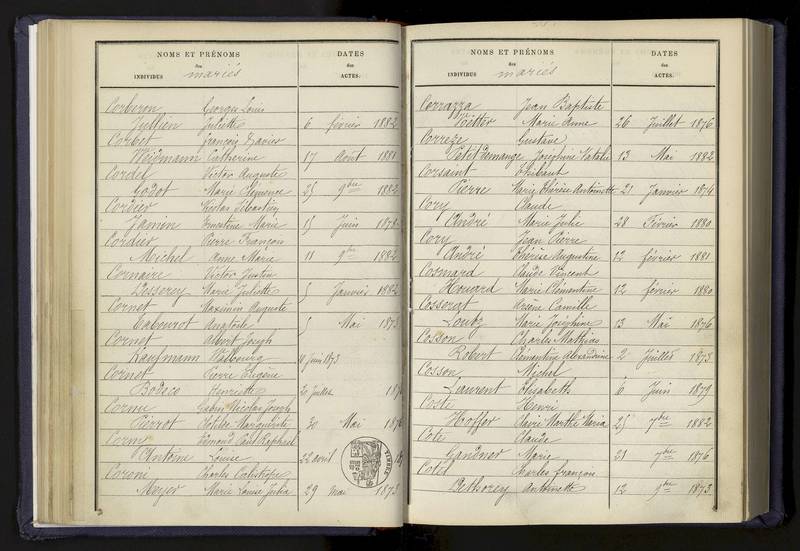 NOMS ET PRÉNOMS DATES
des des
INDIVIDUS mariés ACTES.
Corberon Georges Louis
Jullien Juliette 6 février 1882
Corbet François Xavier
Weidmann Catherine 17 Août 1881
Cordel Victor Auguste
Godot Marie Clémence 25 9bre 1882
Cordier Nicolas Sébastien
Jamin Ernestine Marie 15 Juin 1878
Cordier Pierre François
Michel Anne Marie 11 9bre 1882
Cornaire Victor Justin
Marie Juliette 5 Janvier 1882
Cornet Maximin Auguste
Cabourot 5 Mai 1873
Cornet Albert Joseph
Kaufmann Walbourg 11 Juin 1873
Cornet Pierre Eugène
Henriette 20 Juillet 187
Cornu Nicolas Joseph
Pierrot Marguerite 30 Mai 1876
Edmond Paul Raphael
Antoine Louise 22 avril
TIMBRE
Coroni Charles
Meyer Marie Louise Julie 29 Mai 1873
NOMS ET PRÉNOMS DATES
des des
INDIVIDUS mariés ACTES.
Corrazza Jean Baptiste
Marie Anne 26 Juillet 1876
Correze Gustave
Petitdemange Joséphine Natalie 13 Mai 1882
Corsaint Thibaut
Pierre Marie Thérèse Antoinette 21 Janvier 1876
Cory Claude
André Marie Julie 28 Février 1880
Cory Jean Pierre
André Thérèse Augustine 12 février 1881
Cosnard Claude Vincent
Houard Marie Clémentine 12 février 1880
Cosserat Arsène Camille
Marie Joséphine 13 Mai 1876
Cosson Charles Mathias
Robert Clémentine Alexandrine 2 Juillet 1873
Cosson Michel
Laurent Elisabeth 6 Juin 1879
Coste Henri
Hoffer Claire Marthe Maria 25 7bre 1882
Cote Claude
Gardner Marie 21 7bre 1876
Charles François
Antoinette 12 9bre 1873